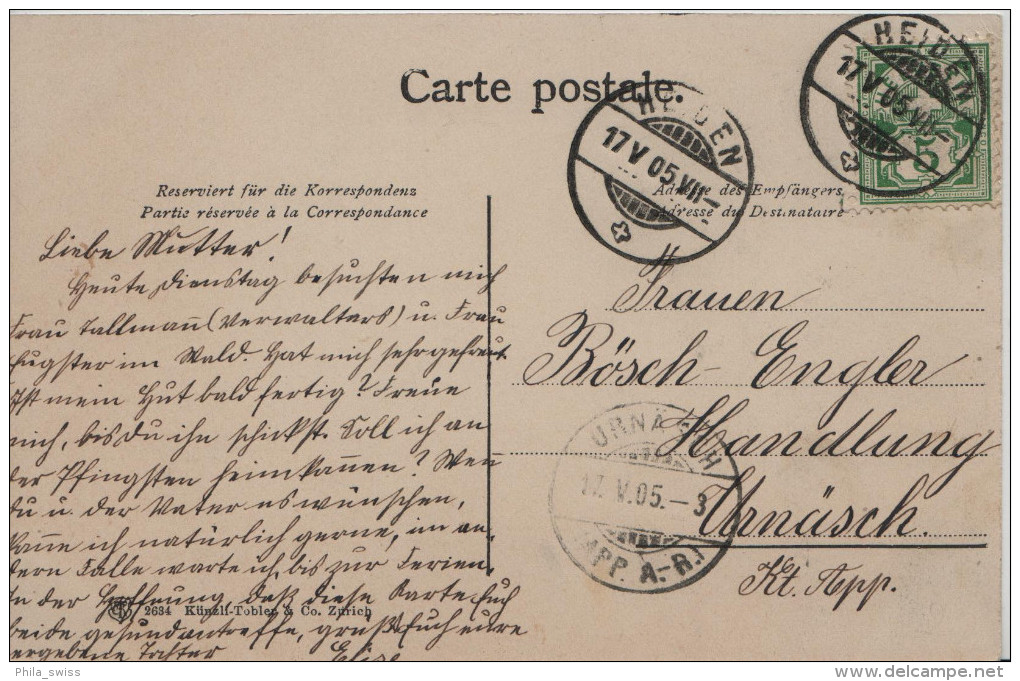 Carte postale.
HEIDEN
17 V 05 VII–
HEIDEN
17 V 05 VII–
5
Reserviert für die Korrespondenz
Partie réservée à la Correspondance
Adresse des Empfängers
Adresse du Destinataire
Liebe Mutter!
Heute Dienstag besuchten mich
Frau Tallmañ (Verwalters) u. Frau
Eugster im Wald. Hat mich sehr gefreut.
Ist mein Hut bald fertig? Freue
mich, bis du ihn schickst. Soll ich an
der Pfingsten heimkañen? Weñ
du u. der Vater es wünschen,
kañe ich natürlich gerne, im an-
dern Falle warte ich, bis zur Ferien.
In der Hoffnung, daß diese Karte Euch
beide gesund antreffe, grüßt Euch eure
ergebene Tochter Elise
Frauen
Bösch-Engler
Handlung
Urnäsch.
Kt. App.
URNÄSCH
17. V. 05. – 3
(APP. A.-R.)
2634 Künzli-Tobler & Co. Zürich
Phila_swiss